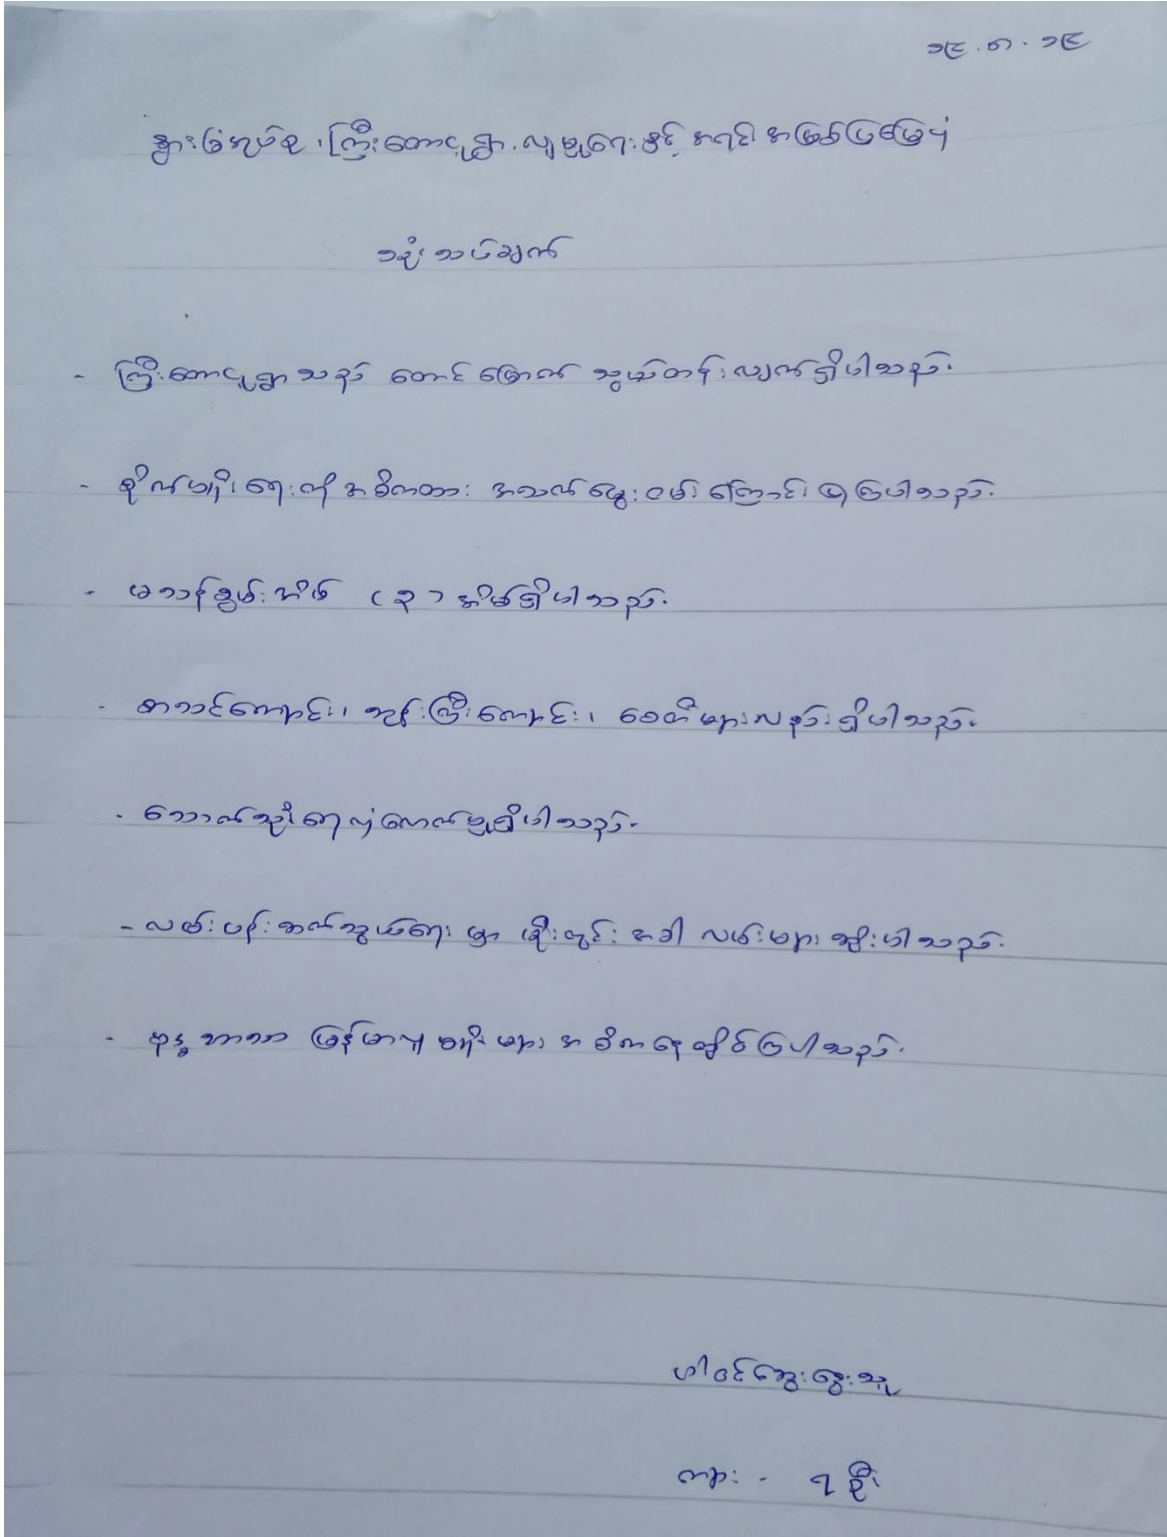 ၁၉.၈.၁၉
နွားခြံအုပ်စု၊ ကြီးတောငူရွာ လူမှုရေးနှင့် အရင်းအမြစ်ပြမြေပုံ
သုံးသပ်ချက်
- ကြီးတောငူရွာသည် တောင်မြောက် သွယ်တန်းလျက်ရှိပါသည်။
- စိုက်ပျိုးရေးကို အဓိကထား အသက်မွေးဝမ်းကြောင်းပြုကြပါသည်။
- မသန်စွမ်းအိမ် (၃) အိမ်ရှိပါသည်။
- စာသင်ကျောင်း၊ ဘုန်းကြီးကျောင်း၊ စေတီများလည်းရှိပါသည်။
- သောက်သုံးရေလုံလောက်မှုရှိပါသည်။
- လမ်းပန်းဆက်သွယ်ရေးမှာ မိုးတွင်းအခါ လမ်းများဆိုးပါသည်။
- ဗုဒ္ဓဘာသာ မြန်မာလူမျိုးများ အဓိကနေထိုင်ကြပါသည်။
ပါဝင်ဆွေးနွေးသူ
ကျား - ၇ ဦး